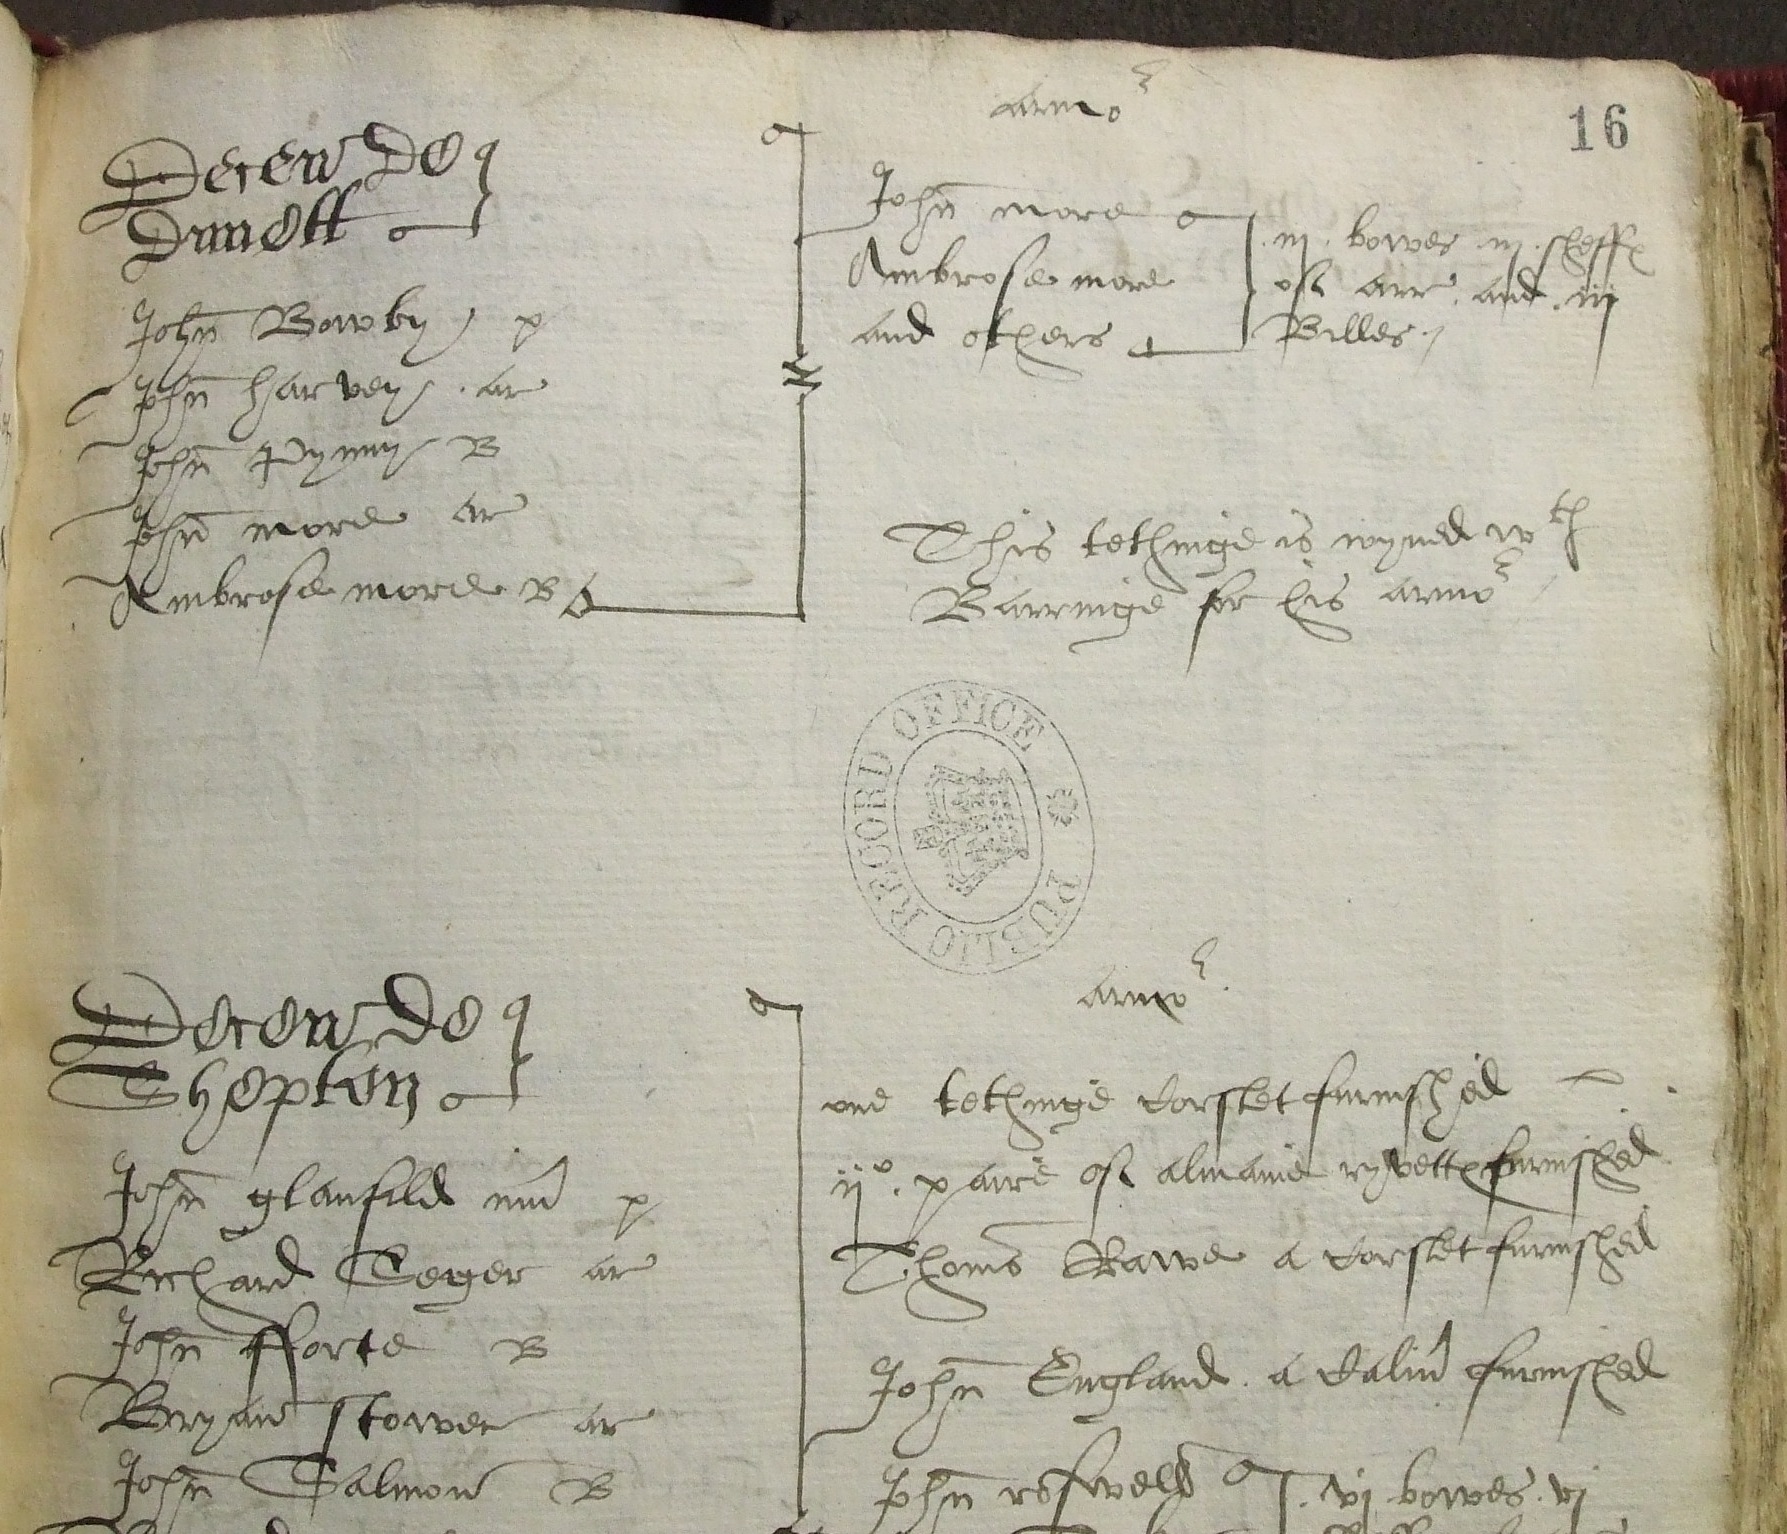 16
armor
Decen de
Dunott
John Bowby p
John harvey ar
John Pynny B
John more ar
Ambrose more B
John more
Ambrose more
and others
iij bowes iij sheff
of arr and iij
Billes
This tethinge is ioyned wth
Barringe for his armor
PUBLIC RECORD OFFICE
Decen de
Shepton
John glanfild iun p
Richard Seger ar
John fforte B
Bryan stower ar
John Salmon B
armor
one tethinge corslet furnished
ij paire of almaine ryvett furnished
Thoms Rawe a corslet furnished
John England a caliu furnished
John
vj bowes vj